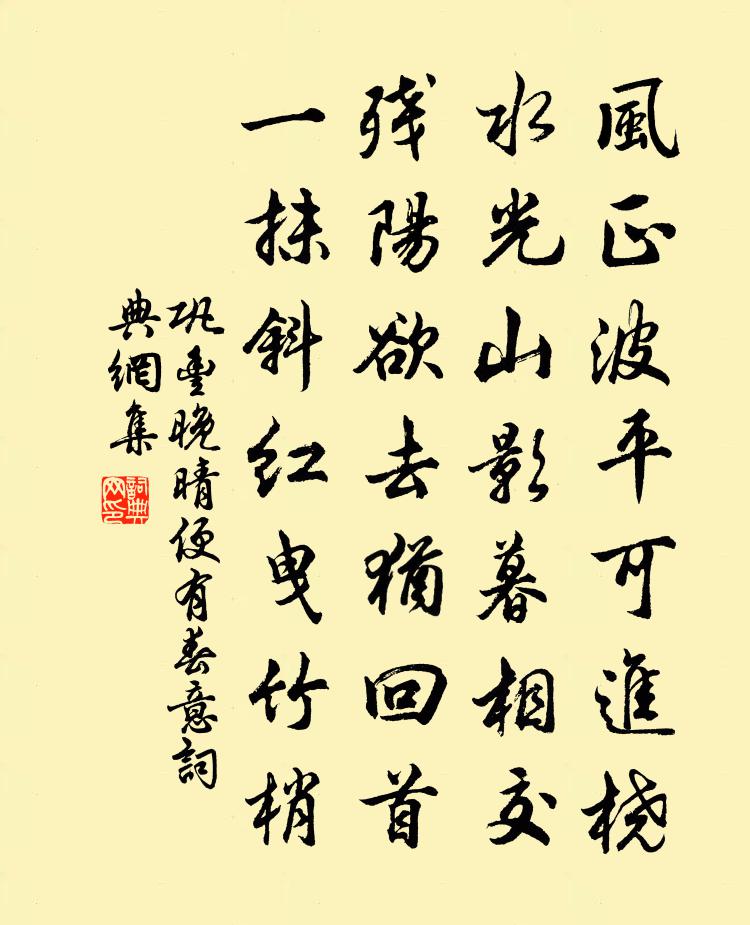 風正波平可進橈
水光山影暮相交
殘陽欲去猶回首
一抹斜紅曳竹梢
巩豊晚晴便有春意詞
典網集
詞典网印